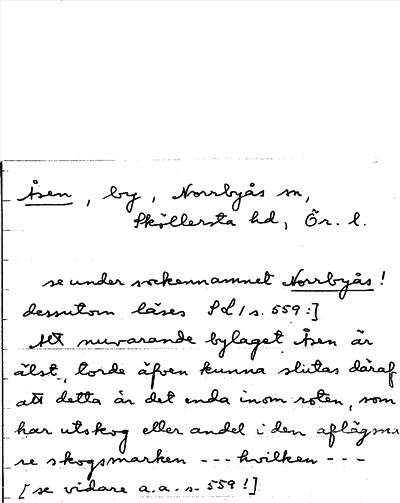 Åsen, by, Norrbyås sn,
Sköllersta hd, Ör. l.
se under sockennamnet Norrbyås!
dessutom läses SL 1 s. 559:]
Att nuvarande bylaget Åsen är
älst, torde äfven kunna slutas däraf
att detta är det enda inom roten, som
har utskog eller andel i den aflägsna
re skogsmarken --- hvilken ---
[se vidare a.a. s. 559!]